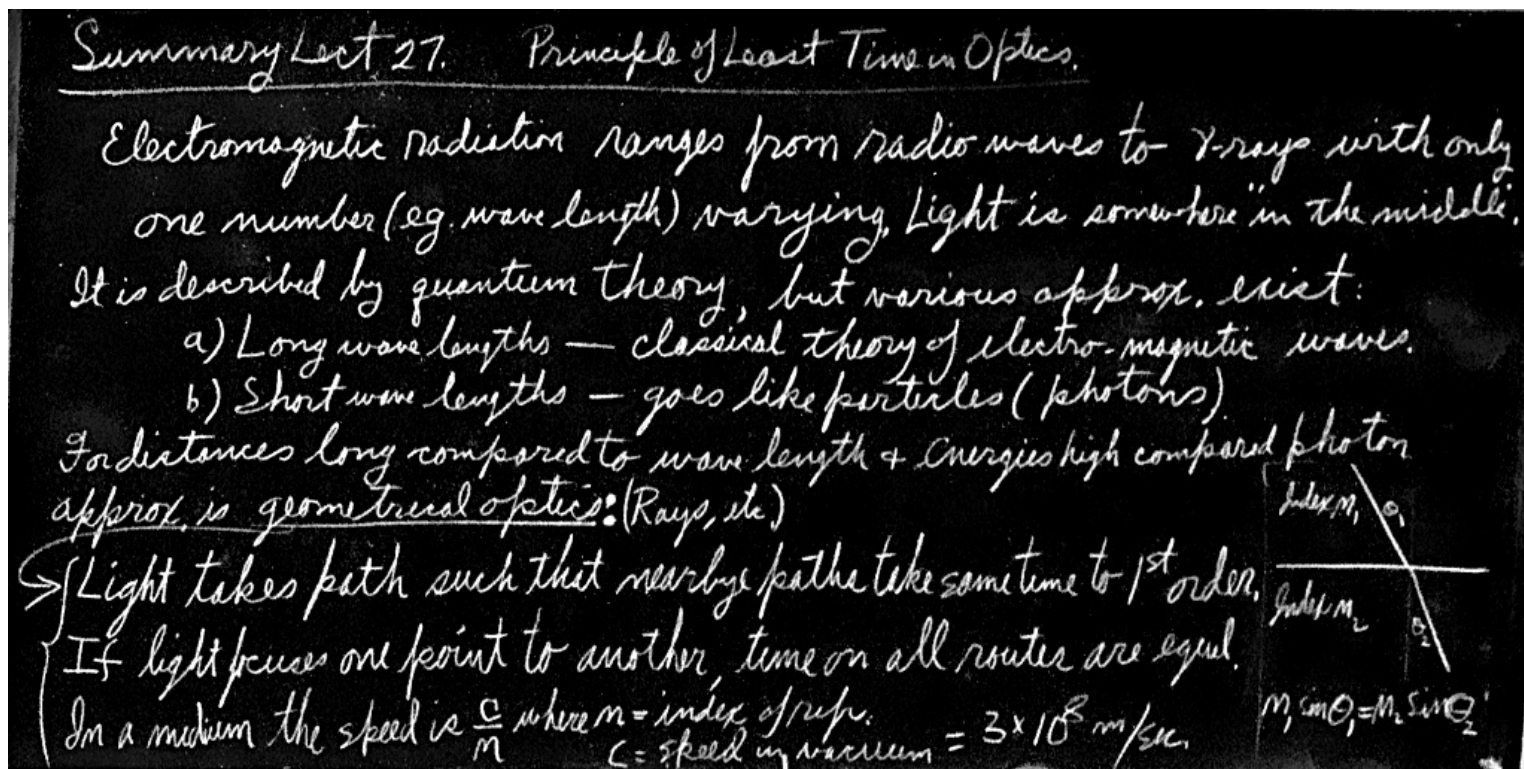 Summary Lect 27. Principle of Least Time in Optics.
Electromagnetic radiation ranges from radio waves to γ-rays with only
one number (eg. wave length) varying. Light is somewhere "in the middle".
It is described by quantum theory, but various approx. exist:
a) Long wave lengths — classical theory of electro-magnetic waves.
b) Short wave lengths — goes like particles (photons)
For distances long compared to wave length + energies high compared photon
approx. is geometrical optics: (Rays, etc.)
Light takes path such that nearbye paths take same time to 1st order.
If light focuses one point to another, time on all routes are equal.
In a medium the speed is c/n where n = index of refr.
c = speed in vacuum = 3×10⁸ m/sec.
Index n₁ θ₁
Index n₂ θ₂
n₁ sin θ₁ = n₂ sin θ₂